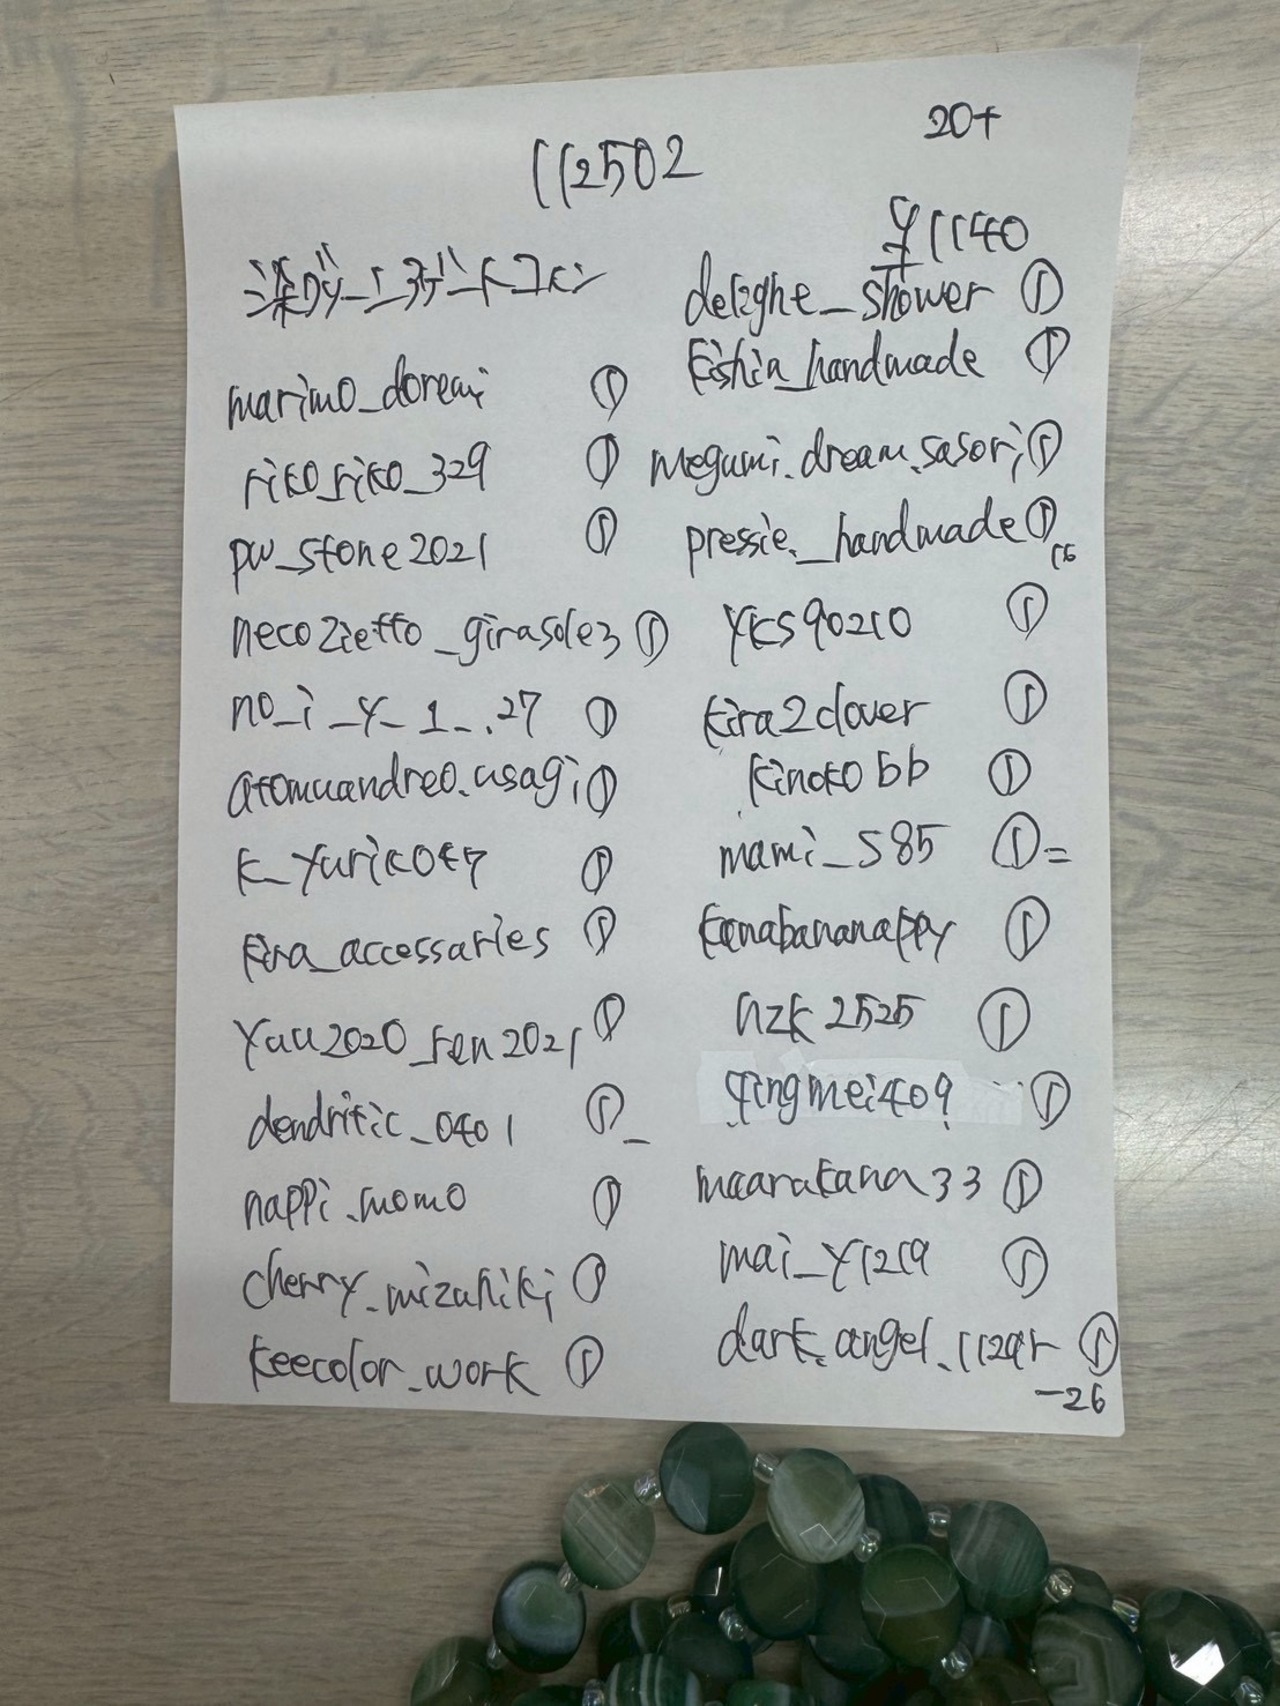 112502
20+
¥1140
染めグリーンアゲートコイン
marimo_doremi ①
riko_riko_329 ①
pw_stone2021 ①
necozietto_girasole3 ①
no_i_y_1_.27 ①
atomuandreo.usagi ①
k_yuriko47 ①
①
yuu2020_ren2021 ①
dendritic_0401 ①_
nappi.momo ①
cherry_mizuhiki ①
keecolor_work ①
①
kishin_handmade ①
megumi.dream.sasori ①
pressie._handmade ①
16
yks90210 ①
kira2clover ①
kinokobb ①
mami_585 ①=
①
nzk2525 ①
qingmei409 ①
maarakana33 ①
mai_y1219 ①
①
-26